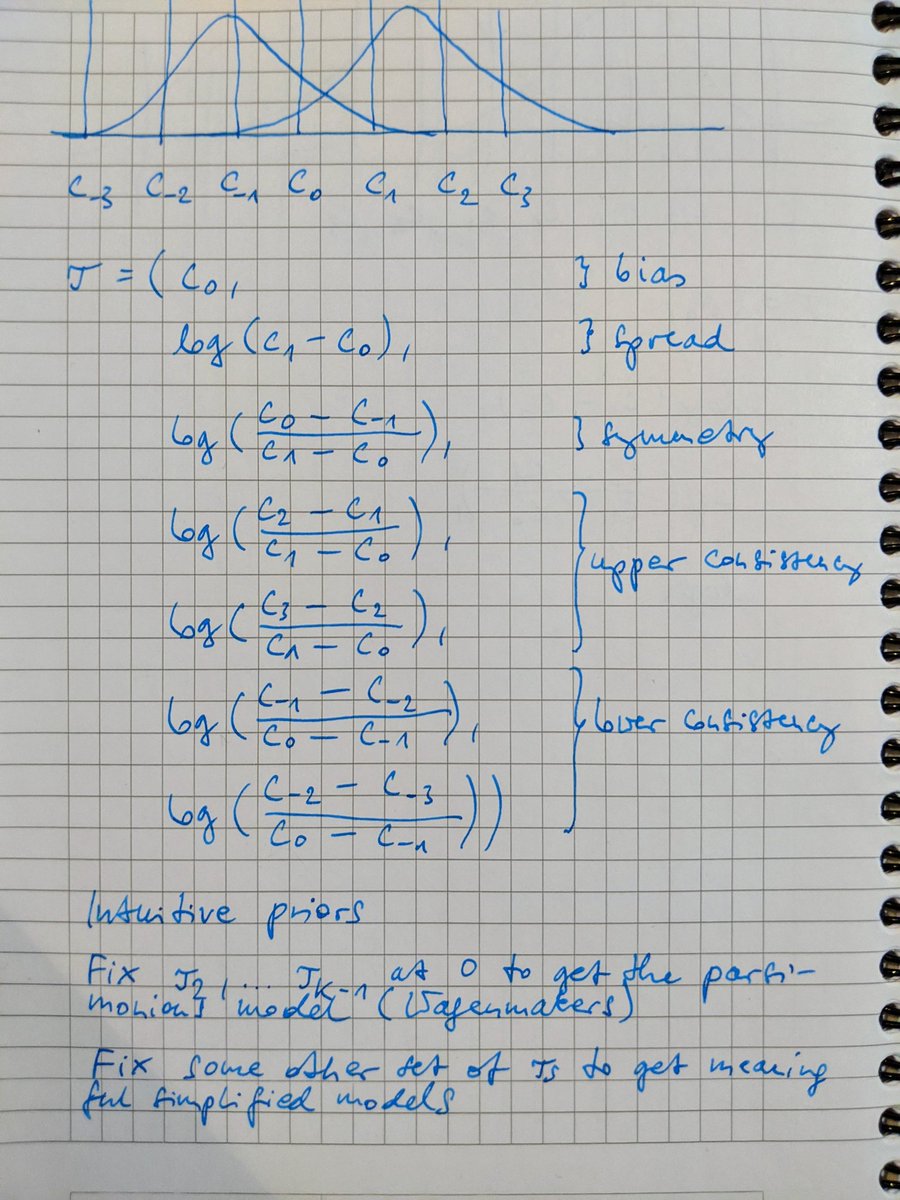 C₋₃ C₋₂ C₋₁ C₀ C₁ C₂ C₃
τ = ( C₀, } bias
log (C₁ − C₀), } spread
log ( (C₀ − C₋₁) / (C₁ − C₀) ), } symmetry
log ( (C₂ − C₁) / (C₁ − C₀) ),
} upper consistency
log ( (C₃ − C₂) / (C₁ − C₀) ),
log ( (C₋₁ − C₋₂) / (C₀ − C₋₁) ),
} lower consistency
log ( (C₋₂ − C₋₃) / (C₀ − C₋₁) ))
Intuitive priors
Fix τ₂, ... τₖ₋₁ at 0 to get the parsi-
monious model (Wagenmakers)
Fix some other set of τs to get meaning
ful simplified models